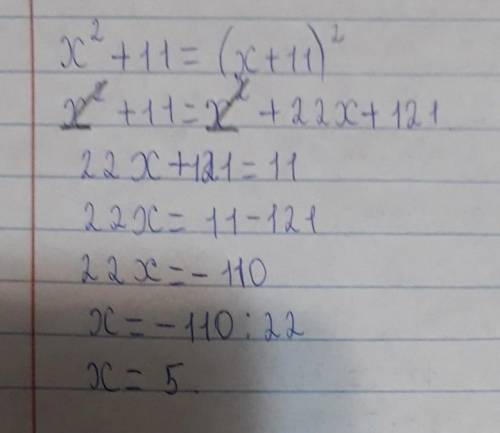 x² + 11 = (x + 11)²
x² + 11 = x² + 22x + 121
22x + 121 = 11
22x = 11 - 121
22x = - 110
x = - 110 : 22
x = 5.